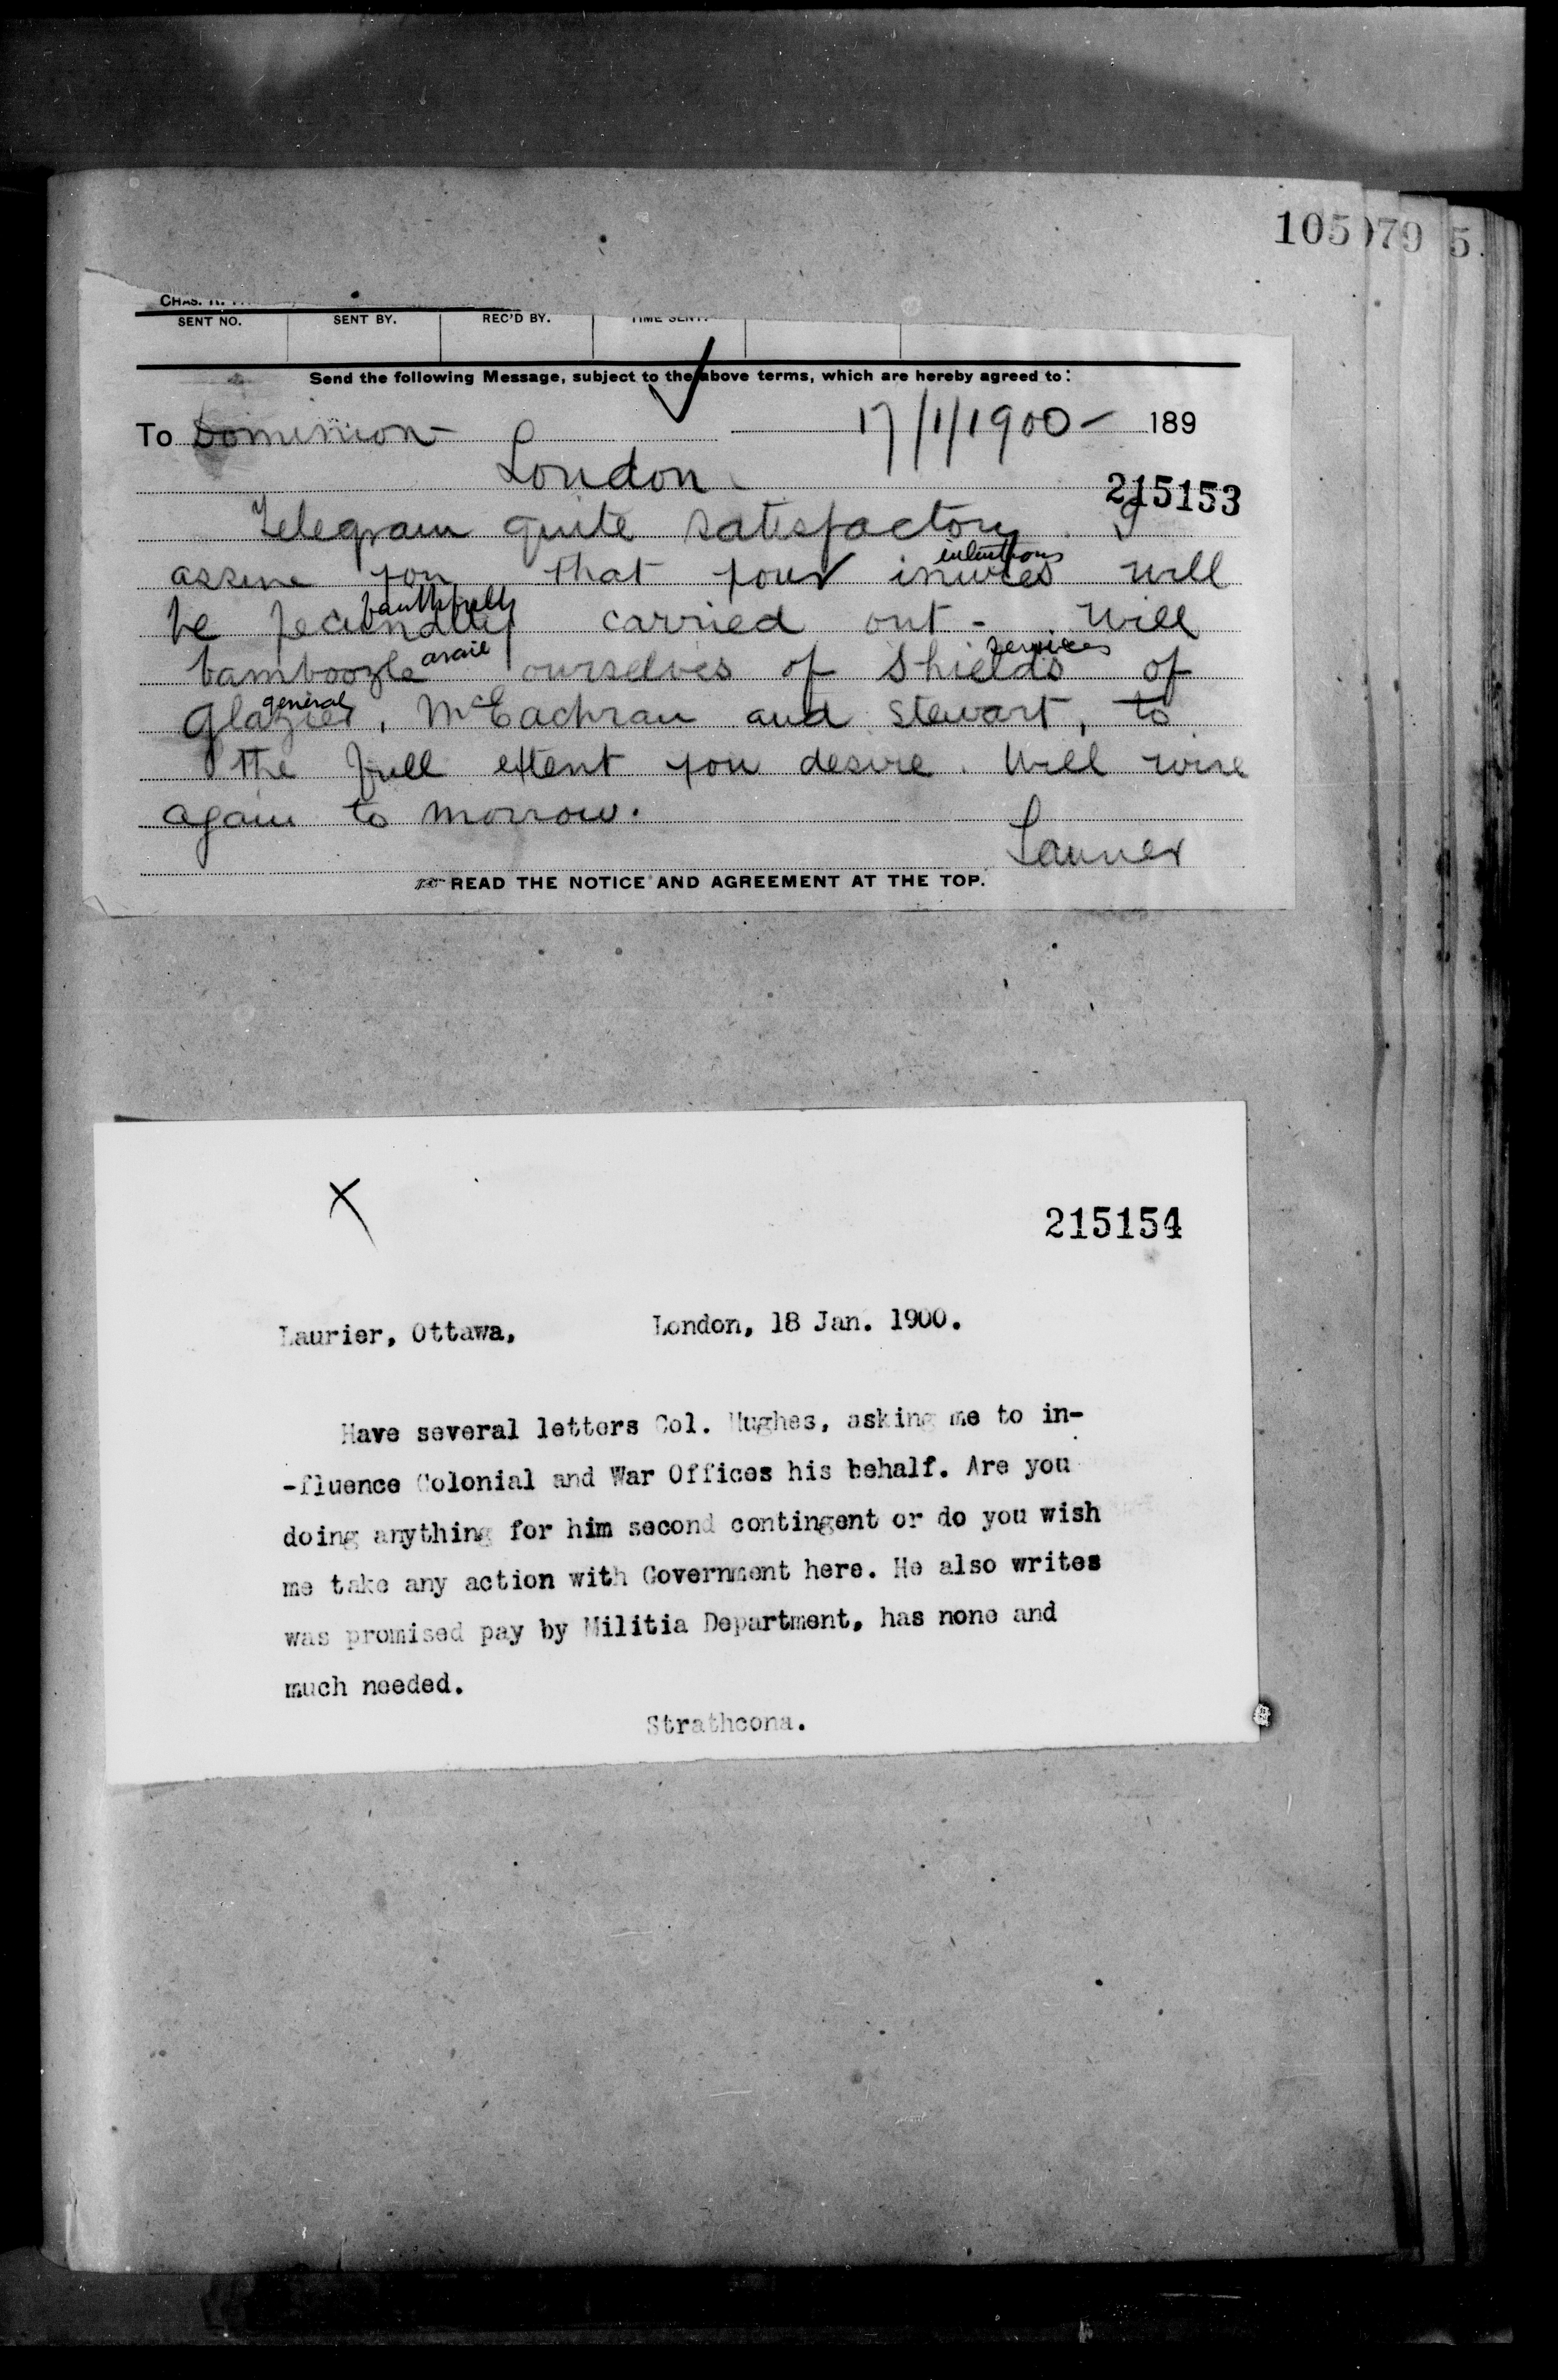 105079 5
SENT NO. SENT BY. REC'D BY. TIME SENT.
Send the following Message, subject to the above terms, which are hereby agreed to:
To Dominion 17/1/1900 - 189
London
215153
Telegram quite satisfactory. I
intentions
assure you that your will
faithfully
be carried out - Will
avail services
bamboozle ourselves of shields of
general
glazier, McEachran and Stewart, to
the full extent you desire. Will wire
again to morrow.
Laurier
READ THE NOTICE AND AGREEMENT AT THE TOP.
X
215154
Laurier, Ottawa, London, 18 Jan. 1900.
Have several letters Col. Hughes, asking me to in-
-fluence Colonial and War Offices his behalf. Are you
doing anything for him second contingent or do you wish
me take any action with Government here. He also writes
was promised pay by Militia Department, has none and
much needed.
Strathcona.